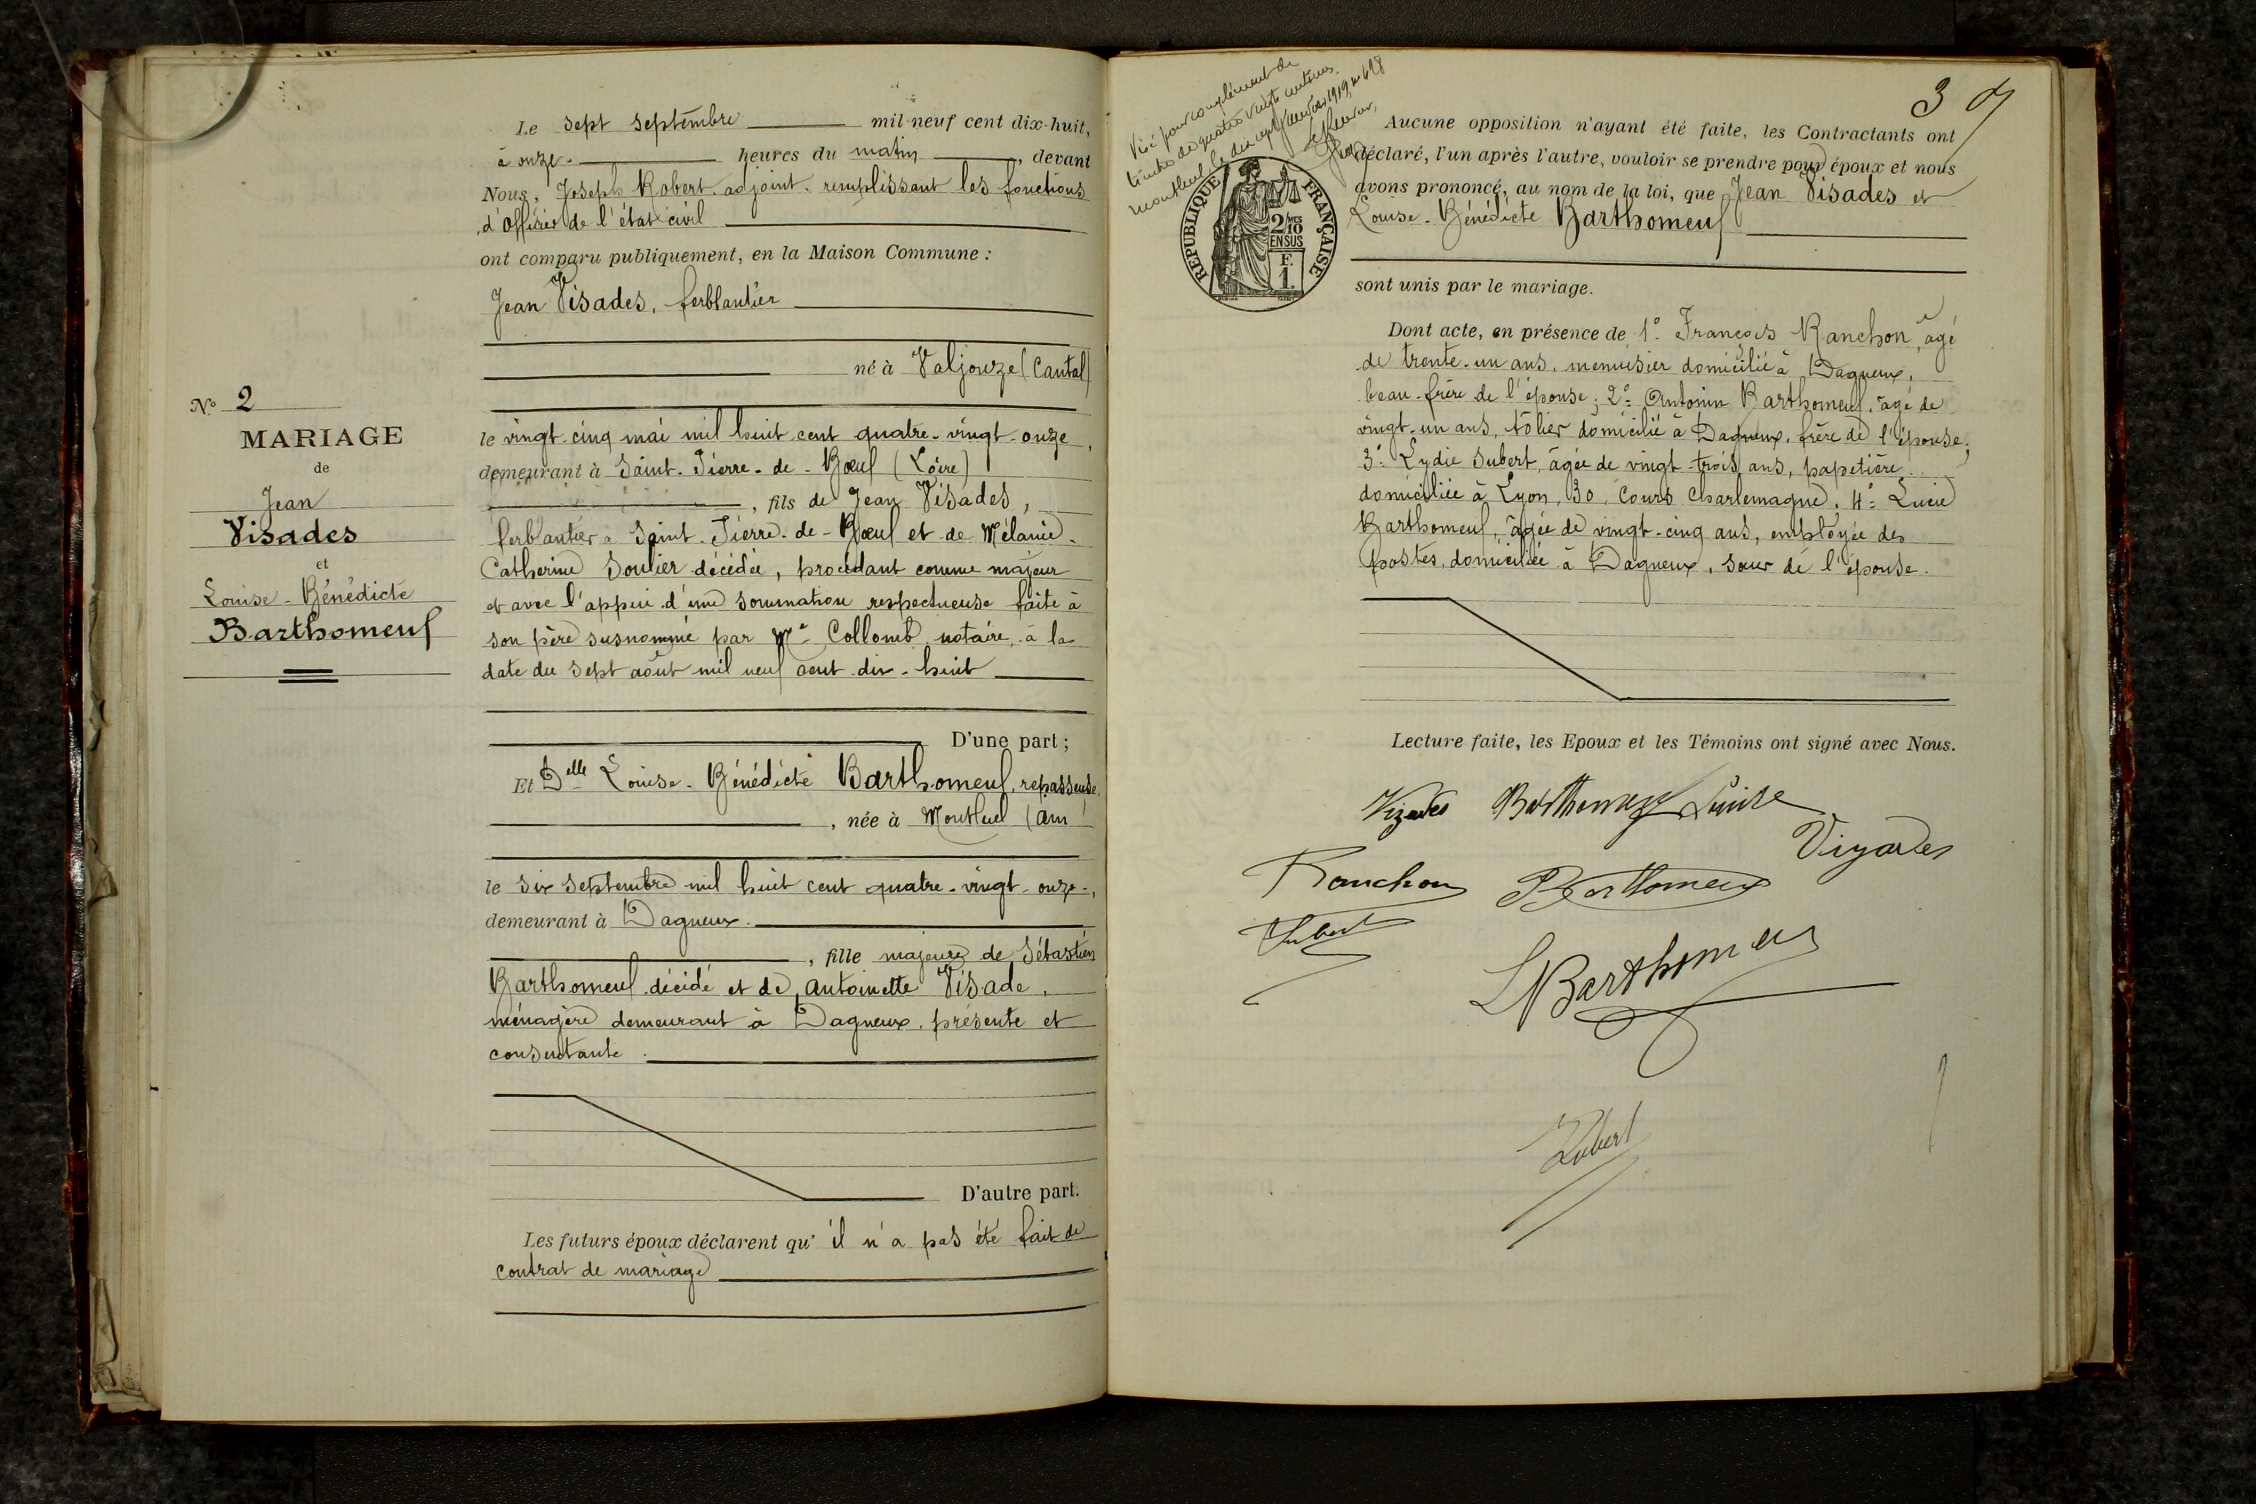 Le sept septembre mil neuf cent dix-huit,
à onze heures du matin, devant
Nous, Joseph Robert adjoint remplissant les fonctions
d'officier de l'état civil
ont comparu publiquement, en la Maison Commune :
Jean Visades, ferblantier
né à Valjouze (Cantal)
N° 2
MARIAGE
de
Jean
Visades
et
Louise-Bénédicte
Barthomeuf
le vingt-cinq mai mil huit cent quatre-vingt-onze,
demeurant à Saint-Pierre-de-Bœuf (Loire)
, fils de Jean Visades,
ferblantier à Saint-Pierre-de-Bœuf et de Mélanie
Catherine Soulier décédée, procédant comme majeur
et avec l'appui d'une sommation respectueuse faite à
son père susnommé par Me Collomb, notaire, à la
date du sept août mil neuf cent dix-huit
D'une part ;
Et Delle Louise-Bénédicte Barthomeuf, repasseuse,
, née à Montluel (Ain)
le six septembre mil huit cent quatre-vingt-onze,
demeurant à Dagneux.
, fille majeure de Sébastien
Barthomeuf décédé et de Antoinette Visade,
ménagère demeurant à Dagneux, présente et
consentante.
D'autre part.
Les futurs époux déclarent qu'il n'a pas été fait de
contrat de mariage
Visé pour complément de
timbre de quatre vingts centimes
Montluel le dix sept janvier 1919
REPUBLIQUE FRANÇAISE
2 MES
10
EN SUS
F.
1.
3
Aucune opposition n'ayant été faite, les Contractants ont
déclaré, l'un après l'autre, vouloir se prendre pour époux et nous
avons prononcé, au nom de la loi, que Jean Visades et
Louise-Bénédicte Barthomeuf
sont unis par le mariage.
Dont acte, en présence de 1° François Ranchon, âgé
de trente-un ans, menuisier domicilié à Dagneux,
beau-frère de l'épouse ; 2° Antonin Barthomeuf, âgé de
vingt-un ans, tôlier domicilié à Dagneux, frère de l'épouse ;
3° Lydie Subert, âgée de vingt-trois ans, papetière
domiciliée à Lyon, 30, Cours Charlemagne. 4° Lucie
Barthomeuf, âgée de vingt-cinq ans, employée des
postes, domiciliée à Dagneux, sœur de l'épouse.
Lecture faite, les Epoux et les Témoins ont signé avec Nous.
Vizades Barthomeuf Louise
Vizades
Ranchon Barthomeuf
Subert
L Barthomeuf
Robert